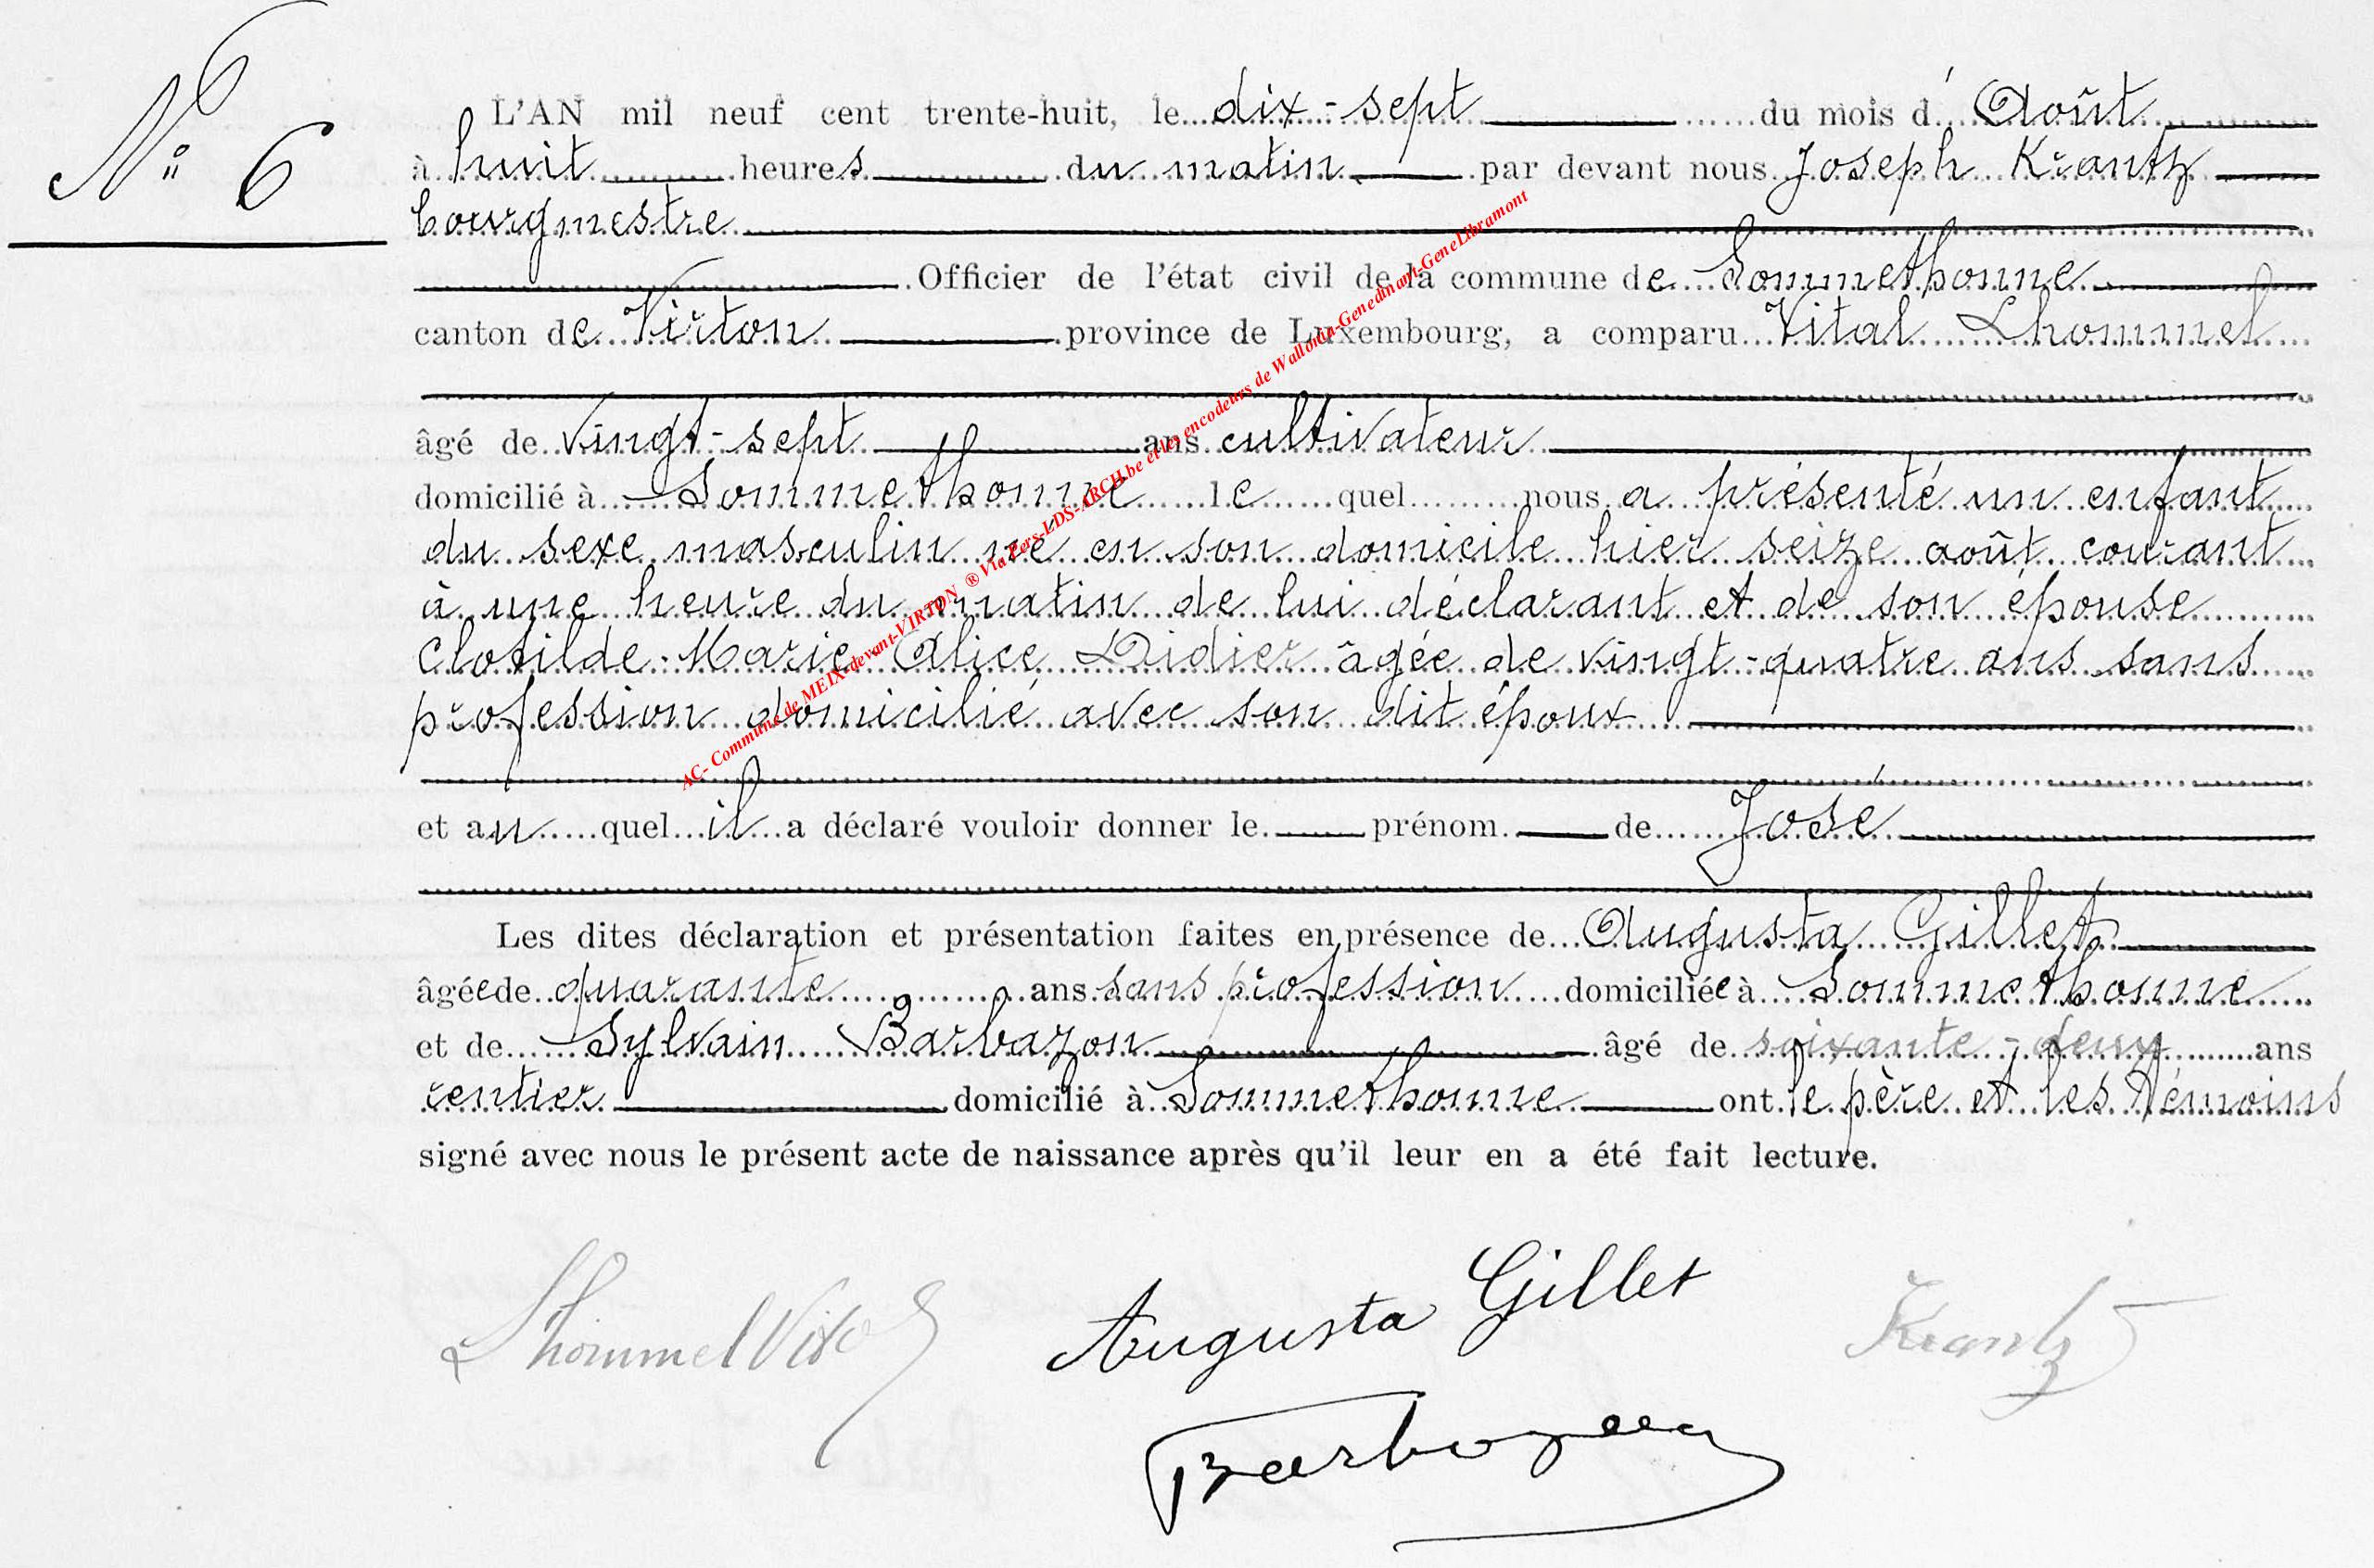 N° 6
L'AN mil neuf cent trente-huit, le dix-sept du mois d'Août
à huit heures du matin par devant nous Joseph Krantz
bourgmestre
Officier de l'état civil de la commune de Sommethonne
canton de Virton province de Luxembourg, a comparu Vital Lhommel
âgé de vingt-sept ans cultivateur
domicilié à Sommethonne lequel nous a présenté un enfant
du sexe masculin né en son domicile hier seize août courant
à une heure du matin de lui déclarant et de son épouse
Clotilde-Marie-Alice Didier âgée de vingt-quatre ans sans
profession domicilié avec son dit époux
et au quel il a déclaré vouloir donner le prénom de José
Les dites déclaration et présentation faites en présence de Augusta Gillet
âgée de quarante ans sans profession domiciliée à Sommethonne
et de Sylvain Barbazon âgé de soixante-deux ans
rentier domicilié à Sommethonne ont le père et les témoins
signé avec nous le présent acte de naissance après qu'il leur en a été fait lecture.
Lhommel Vital Augusta Gillet Krantz
Barbazon
AC- Commune de MEIX-devant-VIRTON ® Via Fers-LDS-ARCH.be et les encodeurs de Wallonia-Genedinant-GeneLibramont